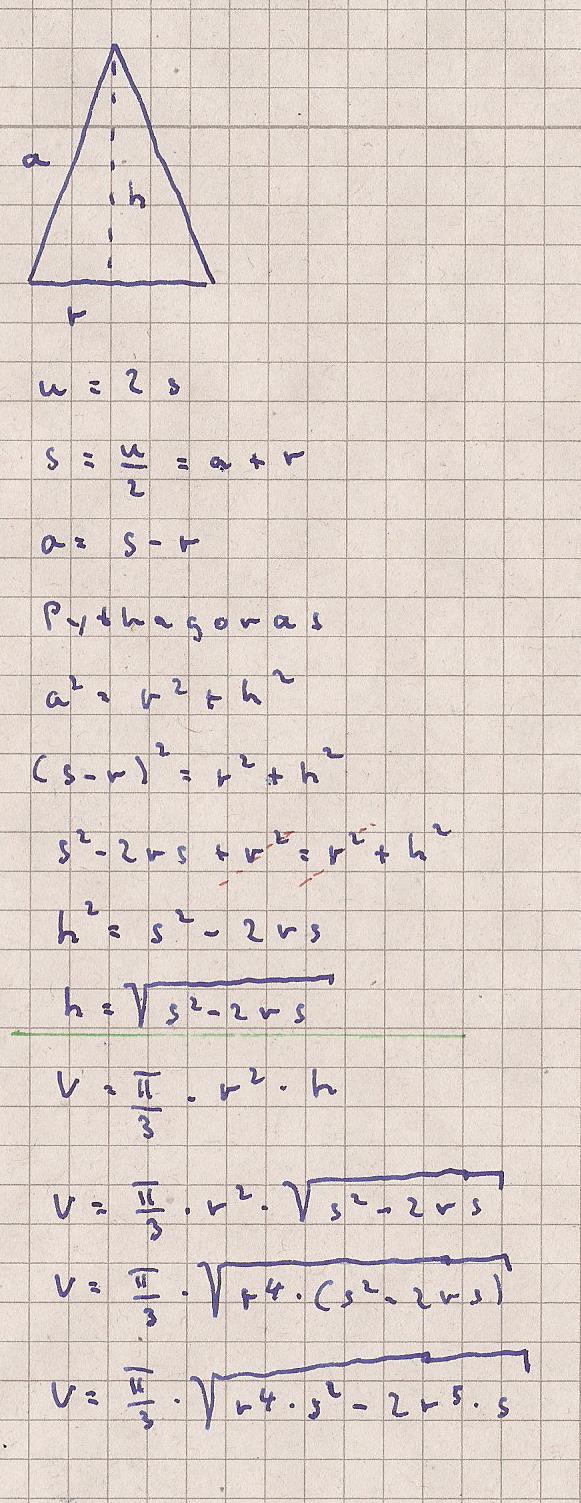 a
h
r
u = 2 s
s = u/2 = a + r
a = s - r
Pythagoras
a² = r² + h²
(s - r)² = r² + h²
s² - 2 r s + r² = r² + h²
h² = s² - 2 r s
h = √(s² - 2 r s)
V = π/3 · r² · h
V = π/3 · r² · √(s² - 2 r s)
V = π/3 · √(r⁴ · (s² - 2 r s))
V = π/3 · √(r⁴ · s² - 2 r⁵ · s)